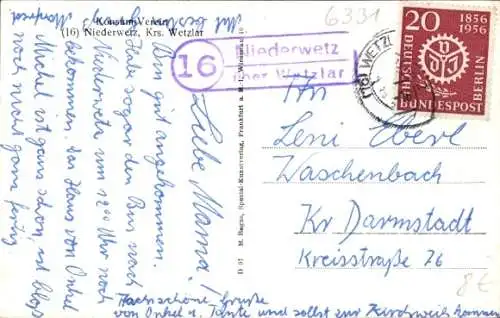 Konsum-Verein
(16) Niederwetz, Krs. Wetzlar
Liebe Mama!
Bin gut angekommen.
Habe sogar den Bus nach
Niederwetz um 12⁰⁰ Uhr noch
bekommen. Das Haus von Onkel
Michel ist ganz schön, ist bloß
noch nicht ganz fertig.
Hachschöne Grüße
von Onkel u. Tante und sollst zur Kirchweih kommen
D 97 M. Bagus, Spezial-Kunstverlag, Frankfurt a. M.
16
Niederwetz
über Wetzlar
6331
20 1856
1956
DEUTSCHE
BUNDESPOST
BERLIN
VDI
An
Leni Eberl
Waschenbach
Kr Darmstadt
Kreisstraße 76
8€